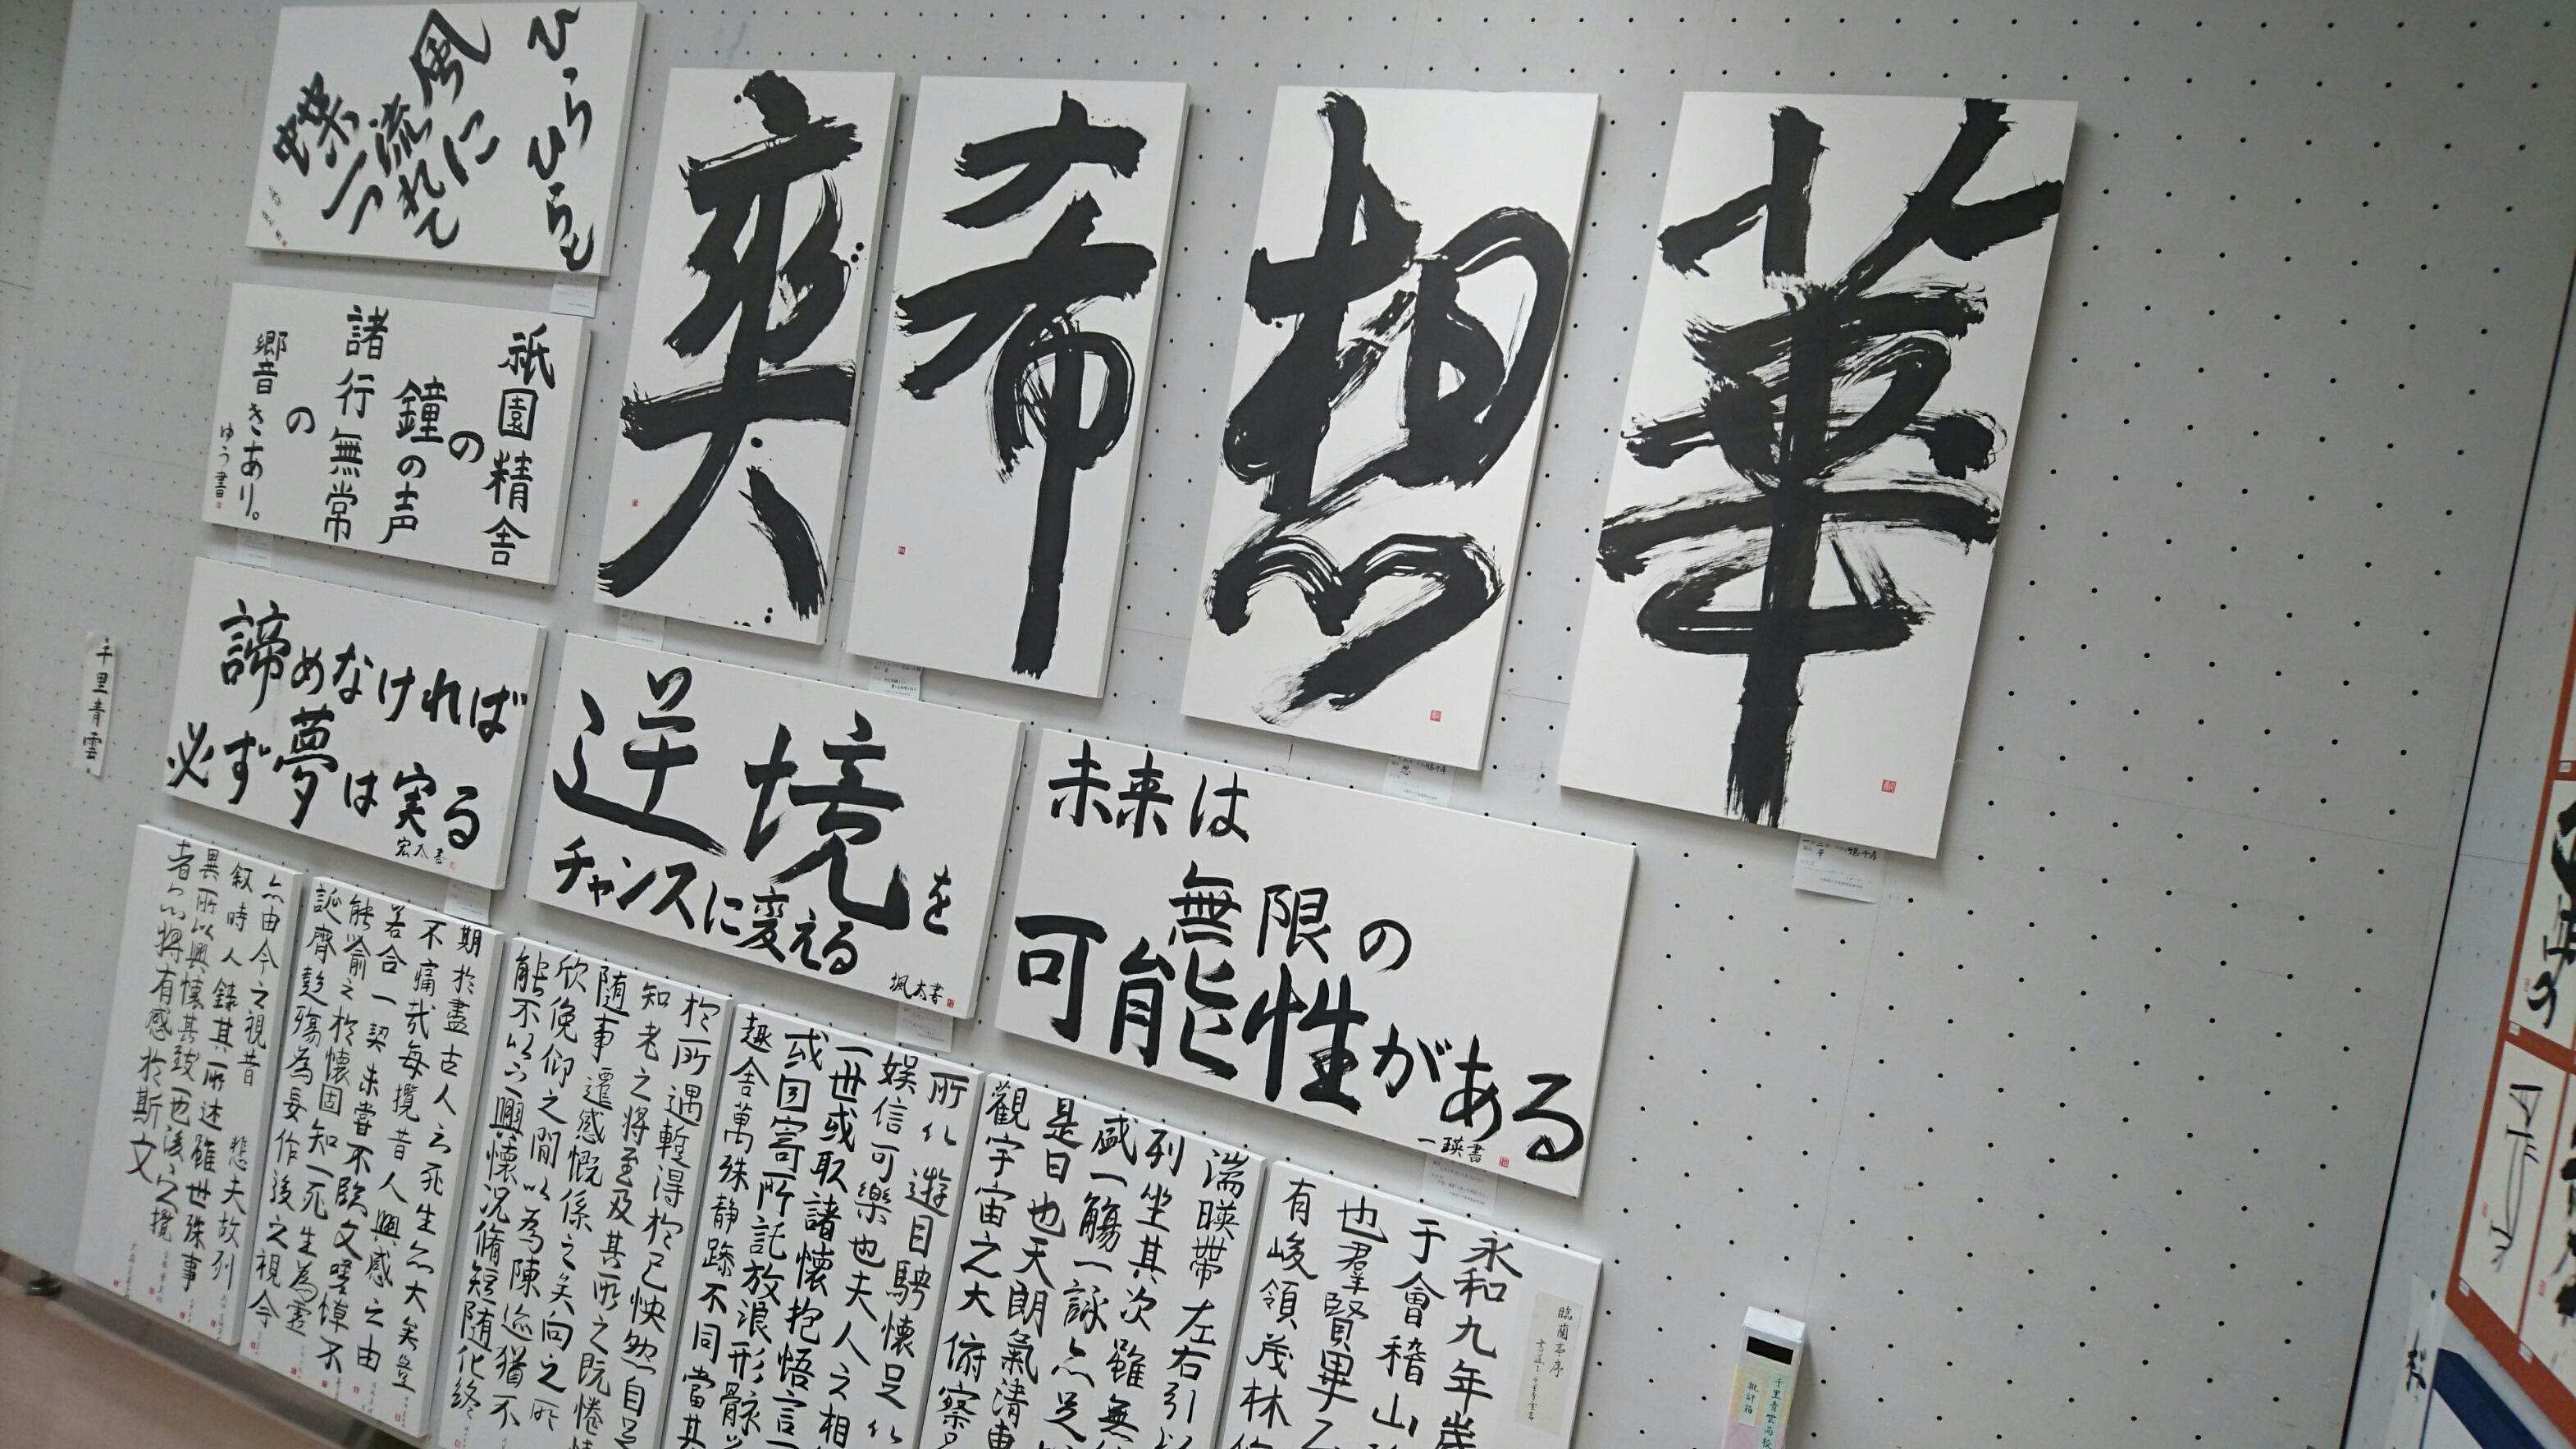 ひらひらと
風に
流れて
蝶一つ
祇園精舎
の
鐘の声
諸行無常
の
響きあり。
ゆう書
諦めなければ
必ず夢は実る
宏太書
爽
希
想
華
逆境を
チャンスに変える
颯太書
未来は
無限の
可能性がある
一瑛書
千里青雲
臨蘭亭序
永和九年歳
于會稽山
也羣賢畢
有峻領茂林
湍暎帶左右引
列坐其次雖無
盛一觴一詠亦足
是日也天朗氣清
觀宇宙之大俯察
所以遊目騁懷足以
娯信可樂也夫人之相
一世或取諸懷抱悟言
或因寄所託放浪形骸
趣舍萬殊静躁不同當其
於所遇蹔得於己怏然自足
知老之將至及其所之既惓
随事遷感慨係之矣向之所
欣俛仰之閒以為陳迹猶不
能不以之興懷况脩短随化終
期於盡古人云死生亦大矣豈
不痛哉每攬昔人興感之由
若合一契未嘗不臨文嗟悼不
能喻之於懷固知一死生為虚
誕齊彭殤為妄作後之視今
亦由今之視昔悲夫故列
叙時人錄其所述雖世殊事
異所以興懷其致一也後之攬
者亦將有感於斯文
千里青雲高校
批評箱